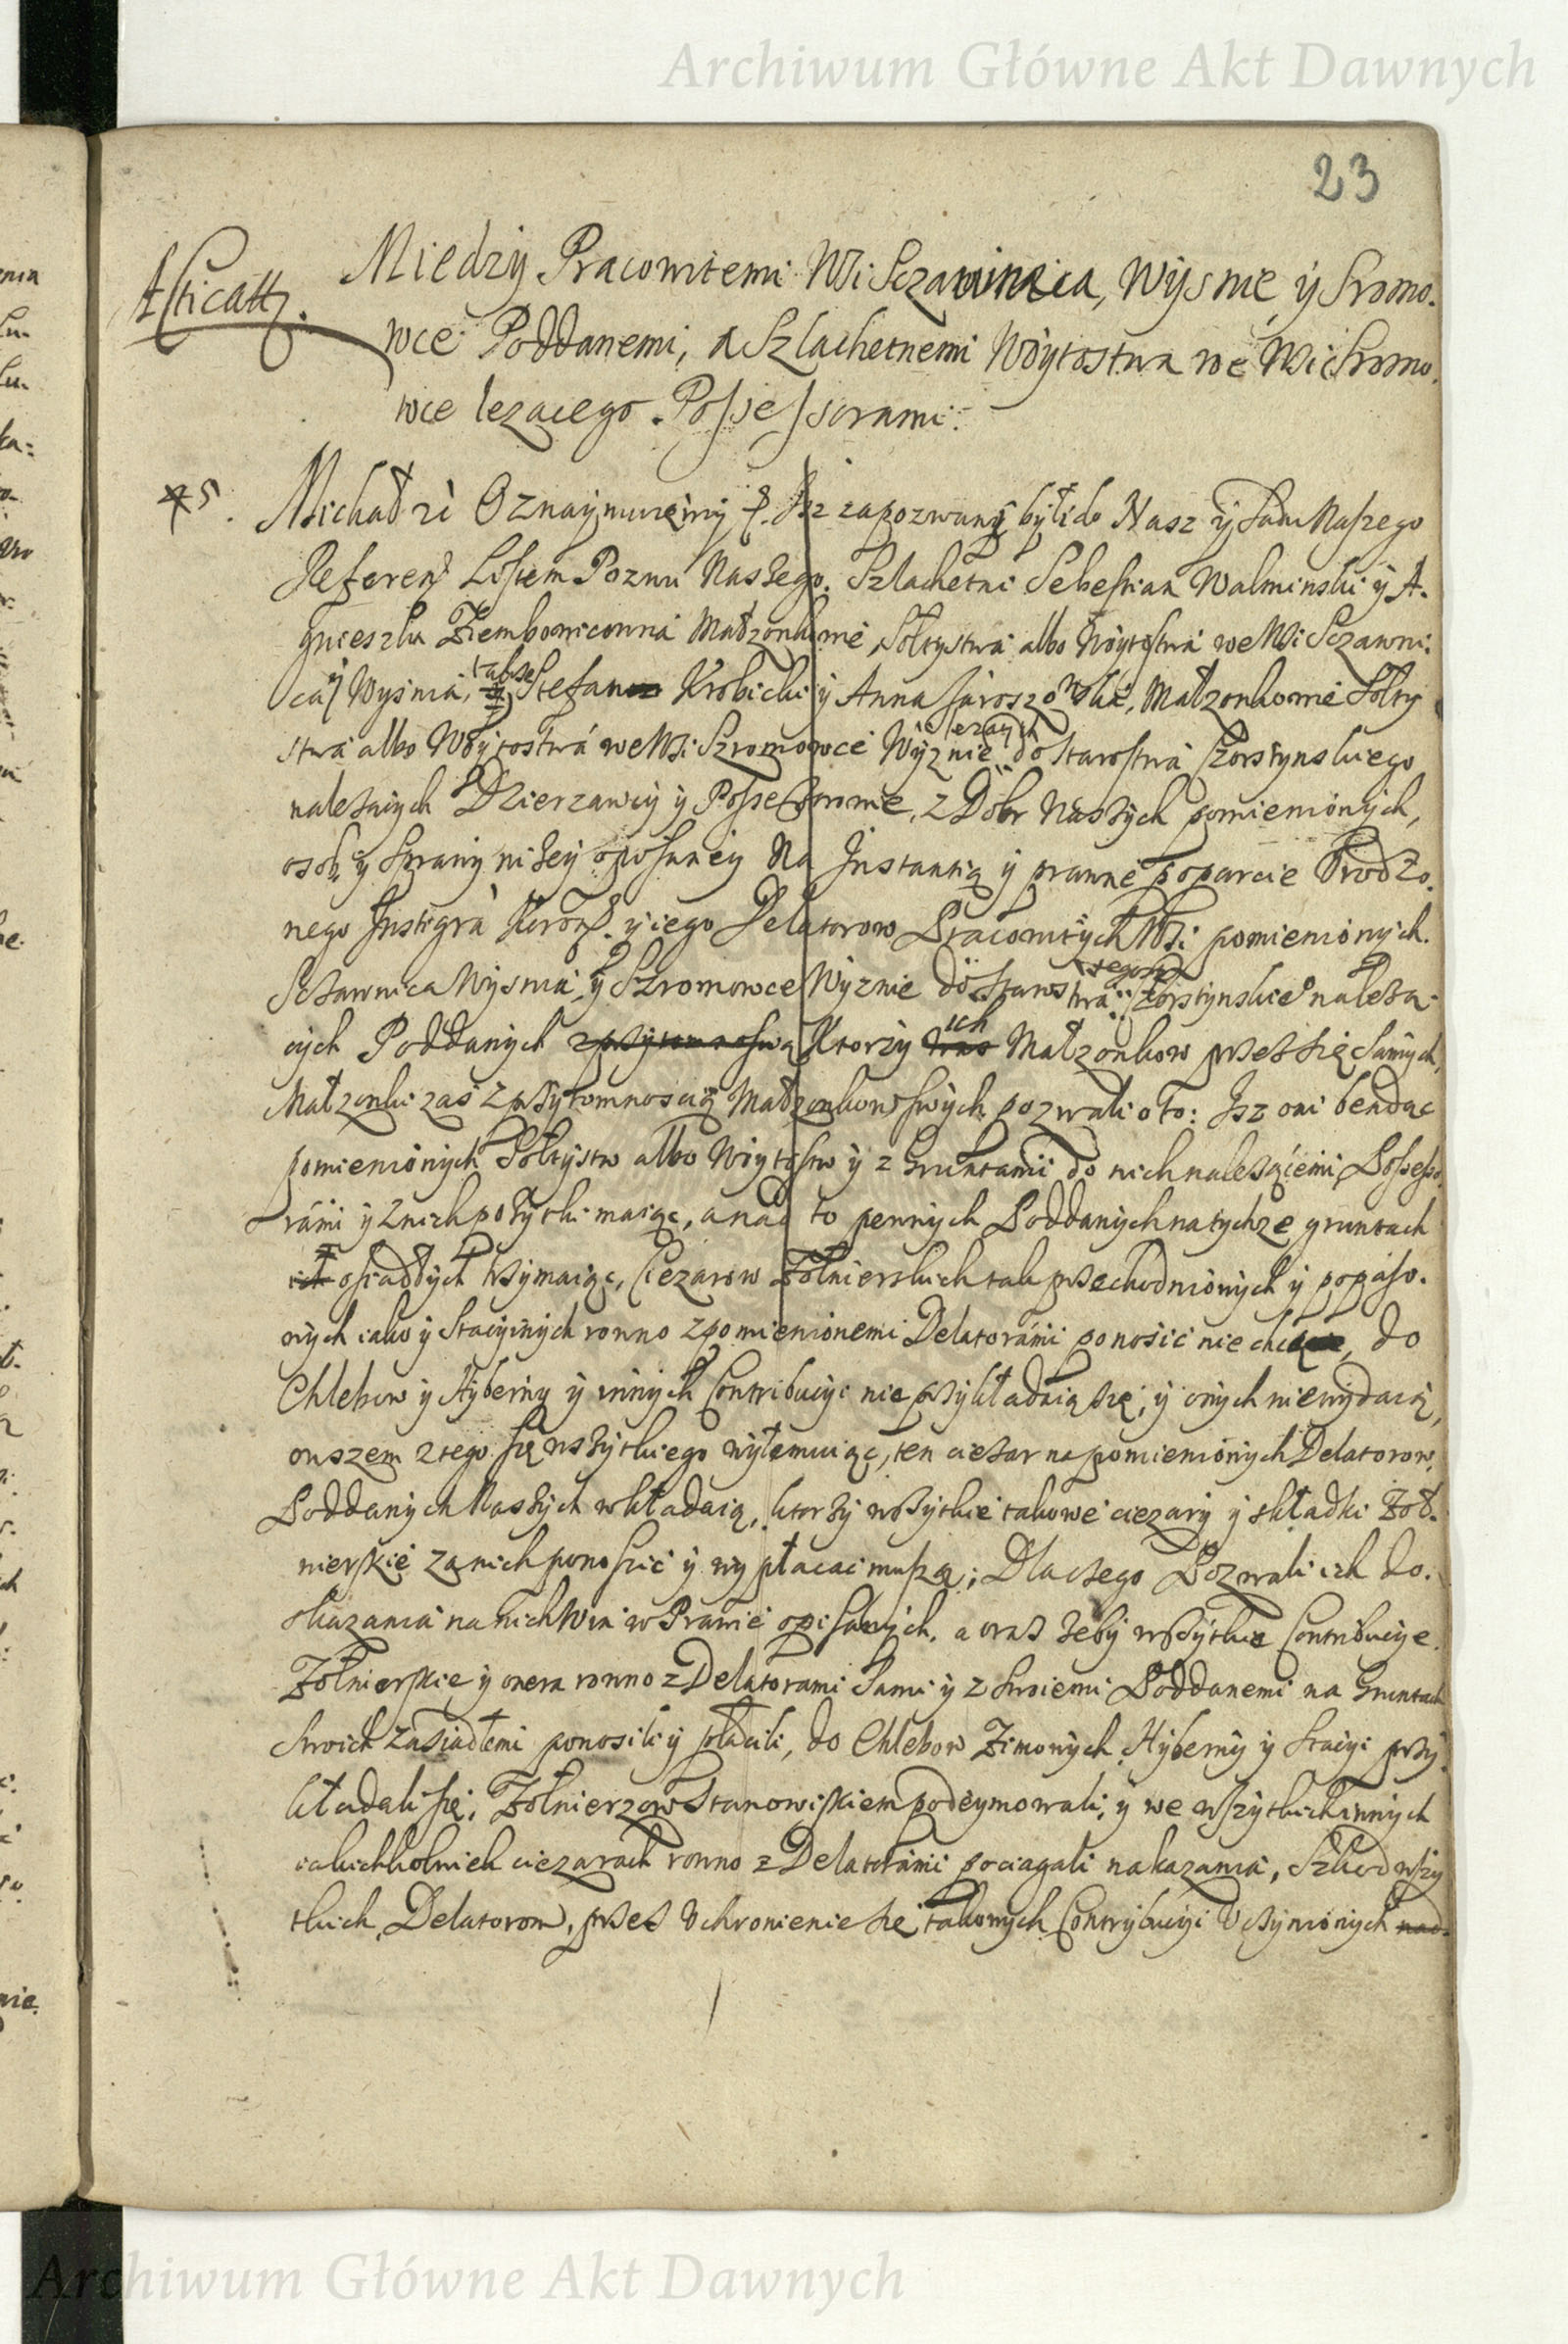 Archiwum Główne Akt Dawnych
23
Miedzy Pracowitemi Wsi Sczawnica, Wysnie, y Sromo.
wce Poddanemi, a Szlachetnemi Woytostwa we Wsi Sromo.
wce lezącego Possessorami.
5. Michał zi Oznaymuiemy p. Isz zapozwany byli do Nasz y Sadu Naszego
Referen Listem Pozwu Naszego. Szlachetni Sebestian Walminski y A.
gnieszka Ziembowiconna Małzonkowie, Sołtystwa albo Woytostwa we Wsi Sczawni.
cay Wysnia, takze Stefan Krobicki y Anna Jaroszowska, Małzonkowie Sołty
stwa albo Woytostwa we Wsi Szromowce Wyznie lezących do Starostwa Czorstynskiego
należących Dzierzawcy y Possessorowie, z Dobr Naszych pomienionych,
osob y Sprawy niżey opisaney Na Instantią y prawne poparcie Urodzo.
nego Instigra Koron. y iego Delatorow Pracowitych Wsi pomienionych.
Sczawnica Wysnia, y Szromowce Wyznie do Starostwa tegosz Czorstynskie należą.
cych Poddanych z przytomnoscią Ktorzy ich Małzonkow przez się samych,
Małzonki zaś z przytomnoscią Małzonkow swych pozwali o to: Isz oni bendąc
pomienionych Sołtystw albo Woytostw y z Gruntami do nich należącemi Possesso
rami y z nich pożytki maiąc, a nad to pewnych Poddanych na tychze gruntach
osiadłych trzymaiąc, Ciezarow Zołnierskich tak przechodnionych y popaso.
wych iako y Stacyinych rowno z pomienionemi Delatorami ponosić nie chcą, do
Chlebow y Hyberny y innych Contribucyi nie przykładaią się, y onych nie wydaią,
owszem z tego się wszytkiego wyłamuiąc, ten ciezar na pomienionych Delatorow,
Poddanych Naszych wkładaią, ktorzy wszytkie takowe ciezary y składki Zoł.
nierskie za nich ponosić y wypłacać muszą; Dlaczego Pozwali ich do.
skazania na nich Win w Prawie opisanych, a oraz żeby wszytkie Contribucye
Zołnierskie y onera rowno z Delatorami Sami y z Swoiemi Poddanemi na Gruntach
Swoich zasiadłemi ponosili y płacili, do Chlebow Zimowych, Hyberny y Stacyi przy
kładali się, Zołnierzow Stanowiskiem podeymowali, y we wszytkich innych
iakichkolwiek ciezarach rowno z Delatorami pociągali nakazania, Szkod wszy
tkich Delatorom, przez uchronienie się takowych Contrybucyi uczynionych
Archiwum Główne Akt Dawnych